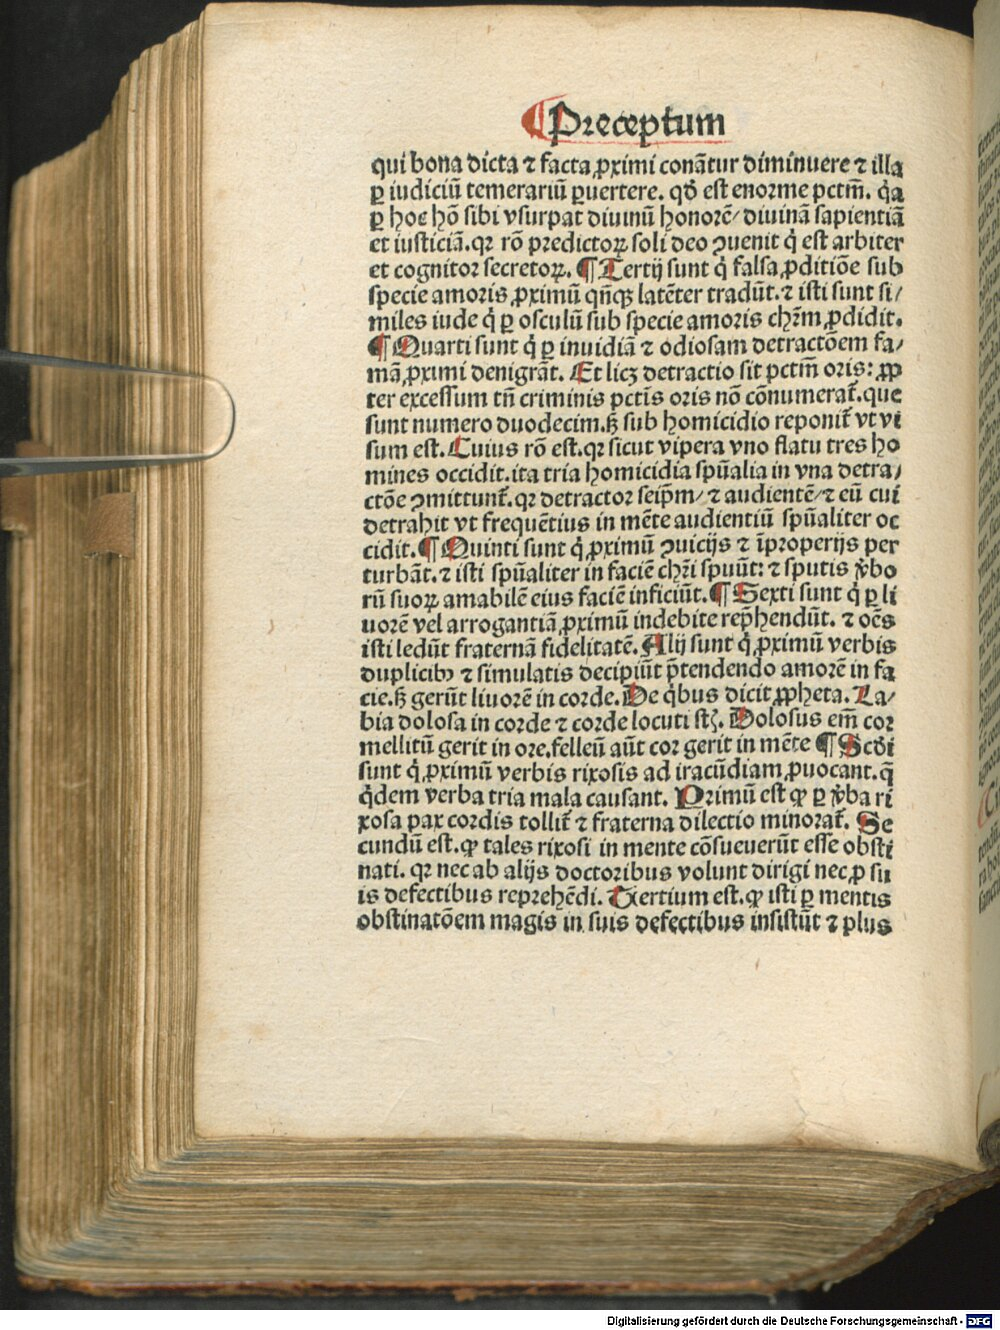 ¶Preceptum
qui bona dicta ⁊ facta ꝓximi conãtur diminuere ⁊ illa
ꝑ iudiciũ temerariũ ꝑuertere. qď est enorme pctm̃. q̇a
ꝑ hoc hõ sibi vsurpat diuinũ honorẽ/ diuinã sapientiã
et iusticiã. qꝛ rõ predictoꝝ soli deo ꝯuenit q̇ est arbiter
et cognitor secretoꝝ. ¶ Tertij sunt q̇ falsa ꝓditiõe sub
specie amoris ꝓximũ qñqꝫ latẽter tradũt. ⁊ isti sunt si/
miles iude q̇ ꝑ osculũ sub specie amoris chr̃m ꝓdidit.
¶ Quarti sunt q̇ ꝑ inuidiã ⁊ odiosam detractõem fa/
mã ꝓximi denigrãt. Et licꝫ detractio sit pctm̃ oris: ꝓp
ter excessum tñ criminis pctĩs oris nõ cõnumerat̃. que
sunt numero duodecim. ß sub homicidio reponit̃ vt vi
sum est. Cuius rõ est. qꝛ sicut vipera vno flatu tres ho
mines occidit. ita tria homicidia spũalia in vna detra/
ctõe ꝯmittunt̃. qꝛ detractor seip̃m/ ⁊ audientẽ/ ⁊ eũ cui
detrahit vt frequẽtius in mẽte audientiũ spũaliter oc
cidit. ¶ Quinti sunt q̇ ꝓximũ ꝯuicijs ⁊ ĩproperijs per
turbãt. ⁊ isti spũaliter in faciẽ chr̃i spuũt: ⁊ sputis v̇bo
rũ suoꝝ amabilẽ eius faciẽ inficiũt. ¶ Sexti sunt q̇ ꝑ li
uorẽ vel arrogantiã ꝓximũ indebite rep̃hendũt. ⁊ oẽs
isti ledũt fraternã fidelitatẽ. Alij sunt q̇ ꝓximũ verbis
duplicibꝰ ⁊ simulatis decipiũt p̃tendendo amorẽ in fa
cie. ß gerũt liuorẽ in corde. De q̇bus dicit ꝓpheta. La/
bia dolosa in corde ⁊ corde locuti st̃. Dolosus em̃ cor
mellitũ gerit in ore. felleũ aũt cor gerit in mẽte ¶ Scďi
sunt q̇ ꝓximũ verbis rixosis ad iracũdiam ꝓuocant. q̃
q̇dem verba tria mala causant. Primũ est ꝙ ꝑ v̇ba ri
xosa pax cordis tollit̃ ⁊ fraterna dilectio minorat̃. Se
cundũ est. ꝙ tales rixosi in mente cõsueuerũt esse obsti
nati. qꝛ nec ab alijs doctoribus volunt dirigi nec ꝓ su
is defectibus reprehẽdi. Tertium est. ꝙ isti ꝑ mentis
obstinatõem magis in suis defectibus insistũt ⁊ plus
Digitalisierung gefördert durch die Deutsche Forschungsgemeinschaft - DFG